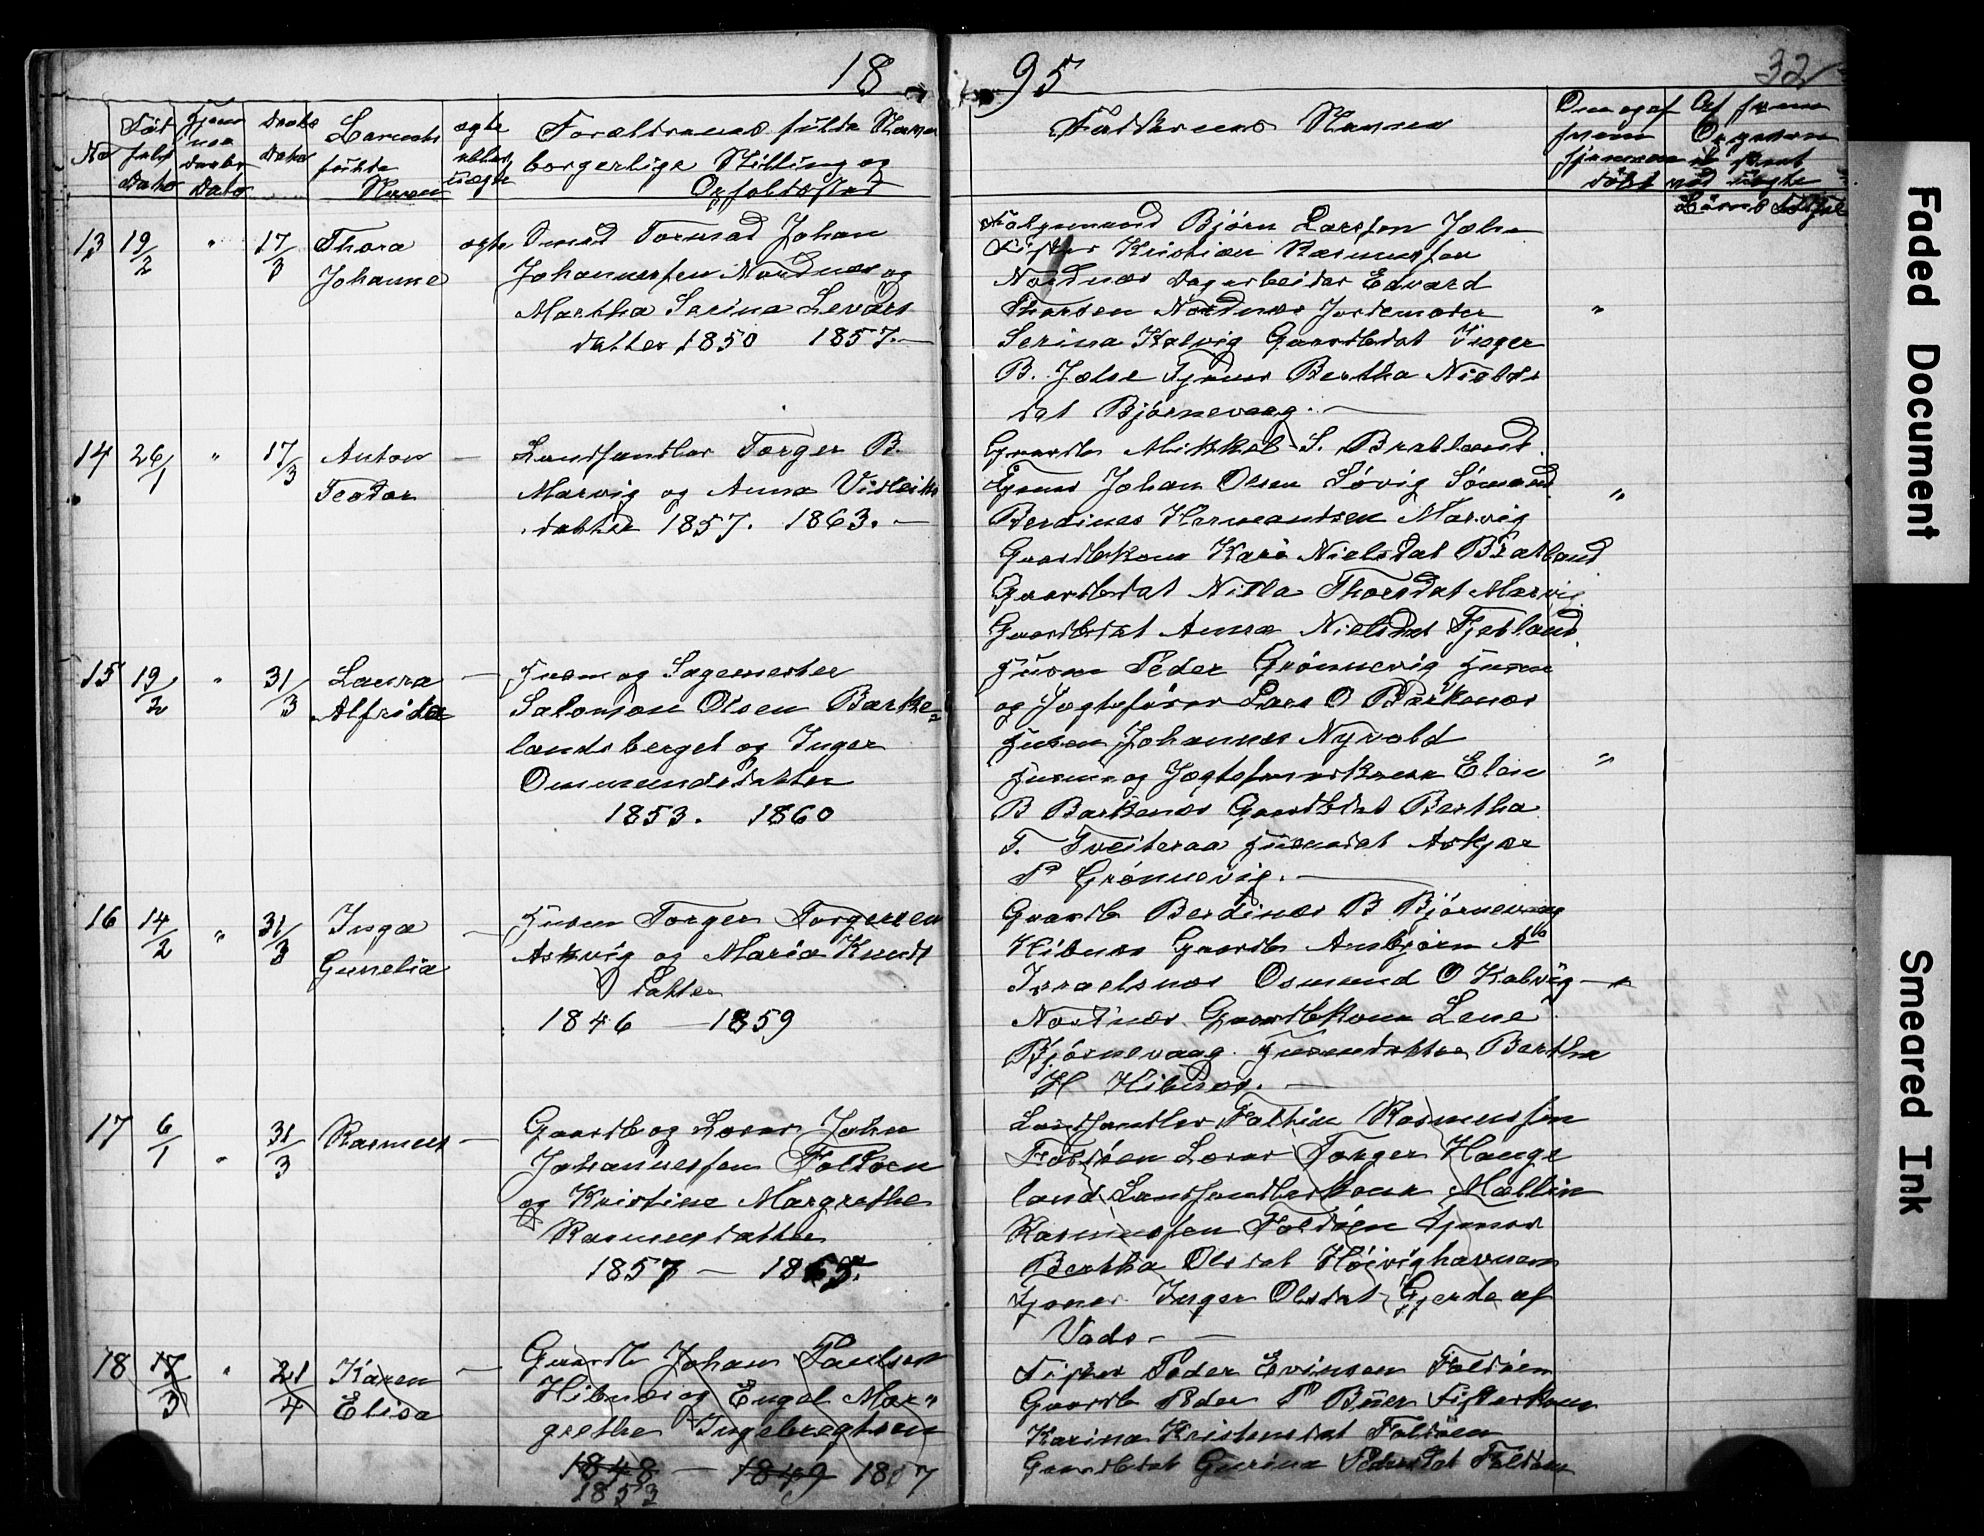 1895
32
No
Fødselsdato
Hjemmedaabs Dato
Daabs Dato
Barnets fulde Navn
ægte eller uægte
Forældrenes fulde Navn
borgerlige Stilling og
Opholdssted
Faddernes Navne
Om og af
hvem
hjemme
døbt
13 19/2 " 17/3 Thora ægte Smed Formad Johan
Johanne Johannessen Nordnæs og
Martha Serina Levars
datter 1850 1857.—
Bjørn Larssen Jæhe
Kristian Rasmussen
Nordnæs Dagarbeider Edvard
Thorsen Nordnæs Jordemoder "
Serina Kalvig Gaardbdat Inger
B. Jælse Tjener Bertha Niels
dat Bjørnevaag.—
14 26/1 " 17/3 Anton — Landhandler Torger B.
Teodor Marvig og Anna Vidleiks
datter 1857. 1863.—
Gaardb Mikkel S. Bratland
Tjener Johan Olsen Søvig Sømand "
Berdines Hermandsen Marvig
Gaardbkone Kari Nielsdat Bratland
Gaardbdat Nilla Thorsdat Marvig
Gaardbdat Anna Nielsdat Fjetland
15 19/2 " 31/3 Laura — Husm og Sagemester
Alfrida Salomon Olsen Barke=
landsberget og Inger
Ommundsdatter
1853. 1860
Husm Peder Grønnevig Husm
og Jægtefører Lars O Barkenæs
Husm Johannes Nyvold
Husm og Jægteførerkone Elen "
B Barkenæs Gaardbdat Bertha
T. Tveiteraa Husmdat Askjær
P Grønnevig.—
16 14/2 " 31/3 Inga — Husm Torger Torgersen
Gunelia Askvig og Maria Knuds
datter
1846 — 1859
Gaardb Berdines B Bjørnevaag
Hibnæs Gaardb Ansbjørn A
Israelsnæs Osmund O Kalvig — "
Nordnæs Gaardbkone Lene
Bjørnevaag. Husmdatter Bertha
H Hibnæs.—
17 6/1 " 31/3 Rasmus — Gaardb og Lærer John
Johannessen Foldøen
og Kristine Margrethe
Rasmusdatter
1857 — 1865.
Landhandler Fallin Rasmussen
Foldøen Lærer Torger Hauge
land Landhandlerkone Mallin
Rasmussen Foldøen Tjener
Bertha Olsdat Høivighavnen
Tjener Inger Olsdat Gjerde af
Vads.—
18 17/3 " 21/4 Karen — Gaardb Johan Paulsen
Elisa Hibnæs og Engel Mar"
grethe Ingebregtsen
1848 — 1849 1857
1853
Fisker Peder Evinsen Foldøen
Gaardb Peder P Buer Fiskerkone
Karina Kristensdat Foldøen
Gaardbdat Gurina Pedersdat Foldøen
Faded Document
Smeared Ink